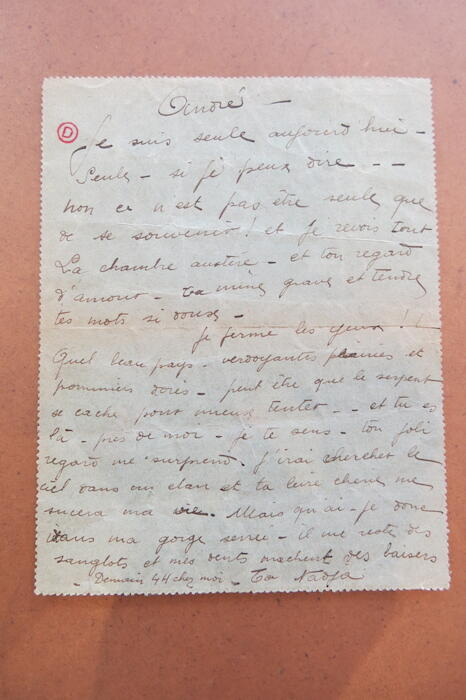 André —
D
Je suis seule aujourd'hui —
Seule — si je peux dire — —
non ce n'est pas être seule que
de se souvenir ! et je revois tout
La chambre austère — et ton regard
d'amour — ta mine grave et tendre
tes mots si doux —
Je ferme les yeux !!
Quel beau pays — verdoyantes plaines et
pommiers dorés — peut être que le serpent
se cache pour mieux tenter — — et tu es
là — près de moi — je te sens — ton joli
regard me surprend. J'irai chercher le
ciel dans un élan et ta lèvre me
sucera ma vie. Mais qu'ai-je donc
dans ma gorge serrée — il me reste des
sanglots et mes dents machent des baisers
— Demain 4H chez moi — Ta Nadja